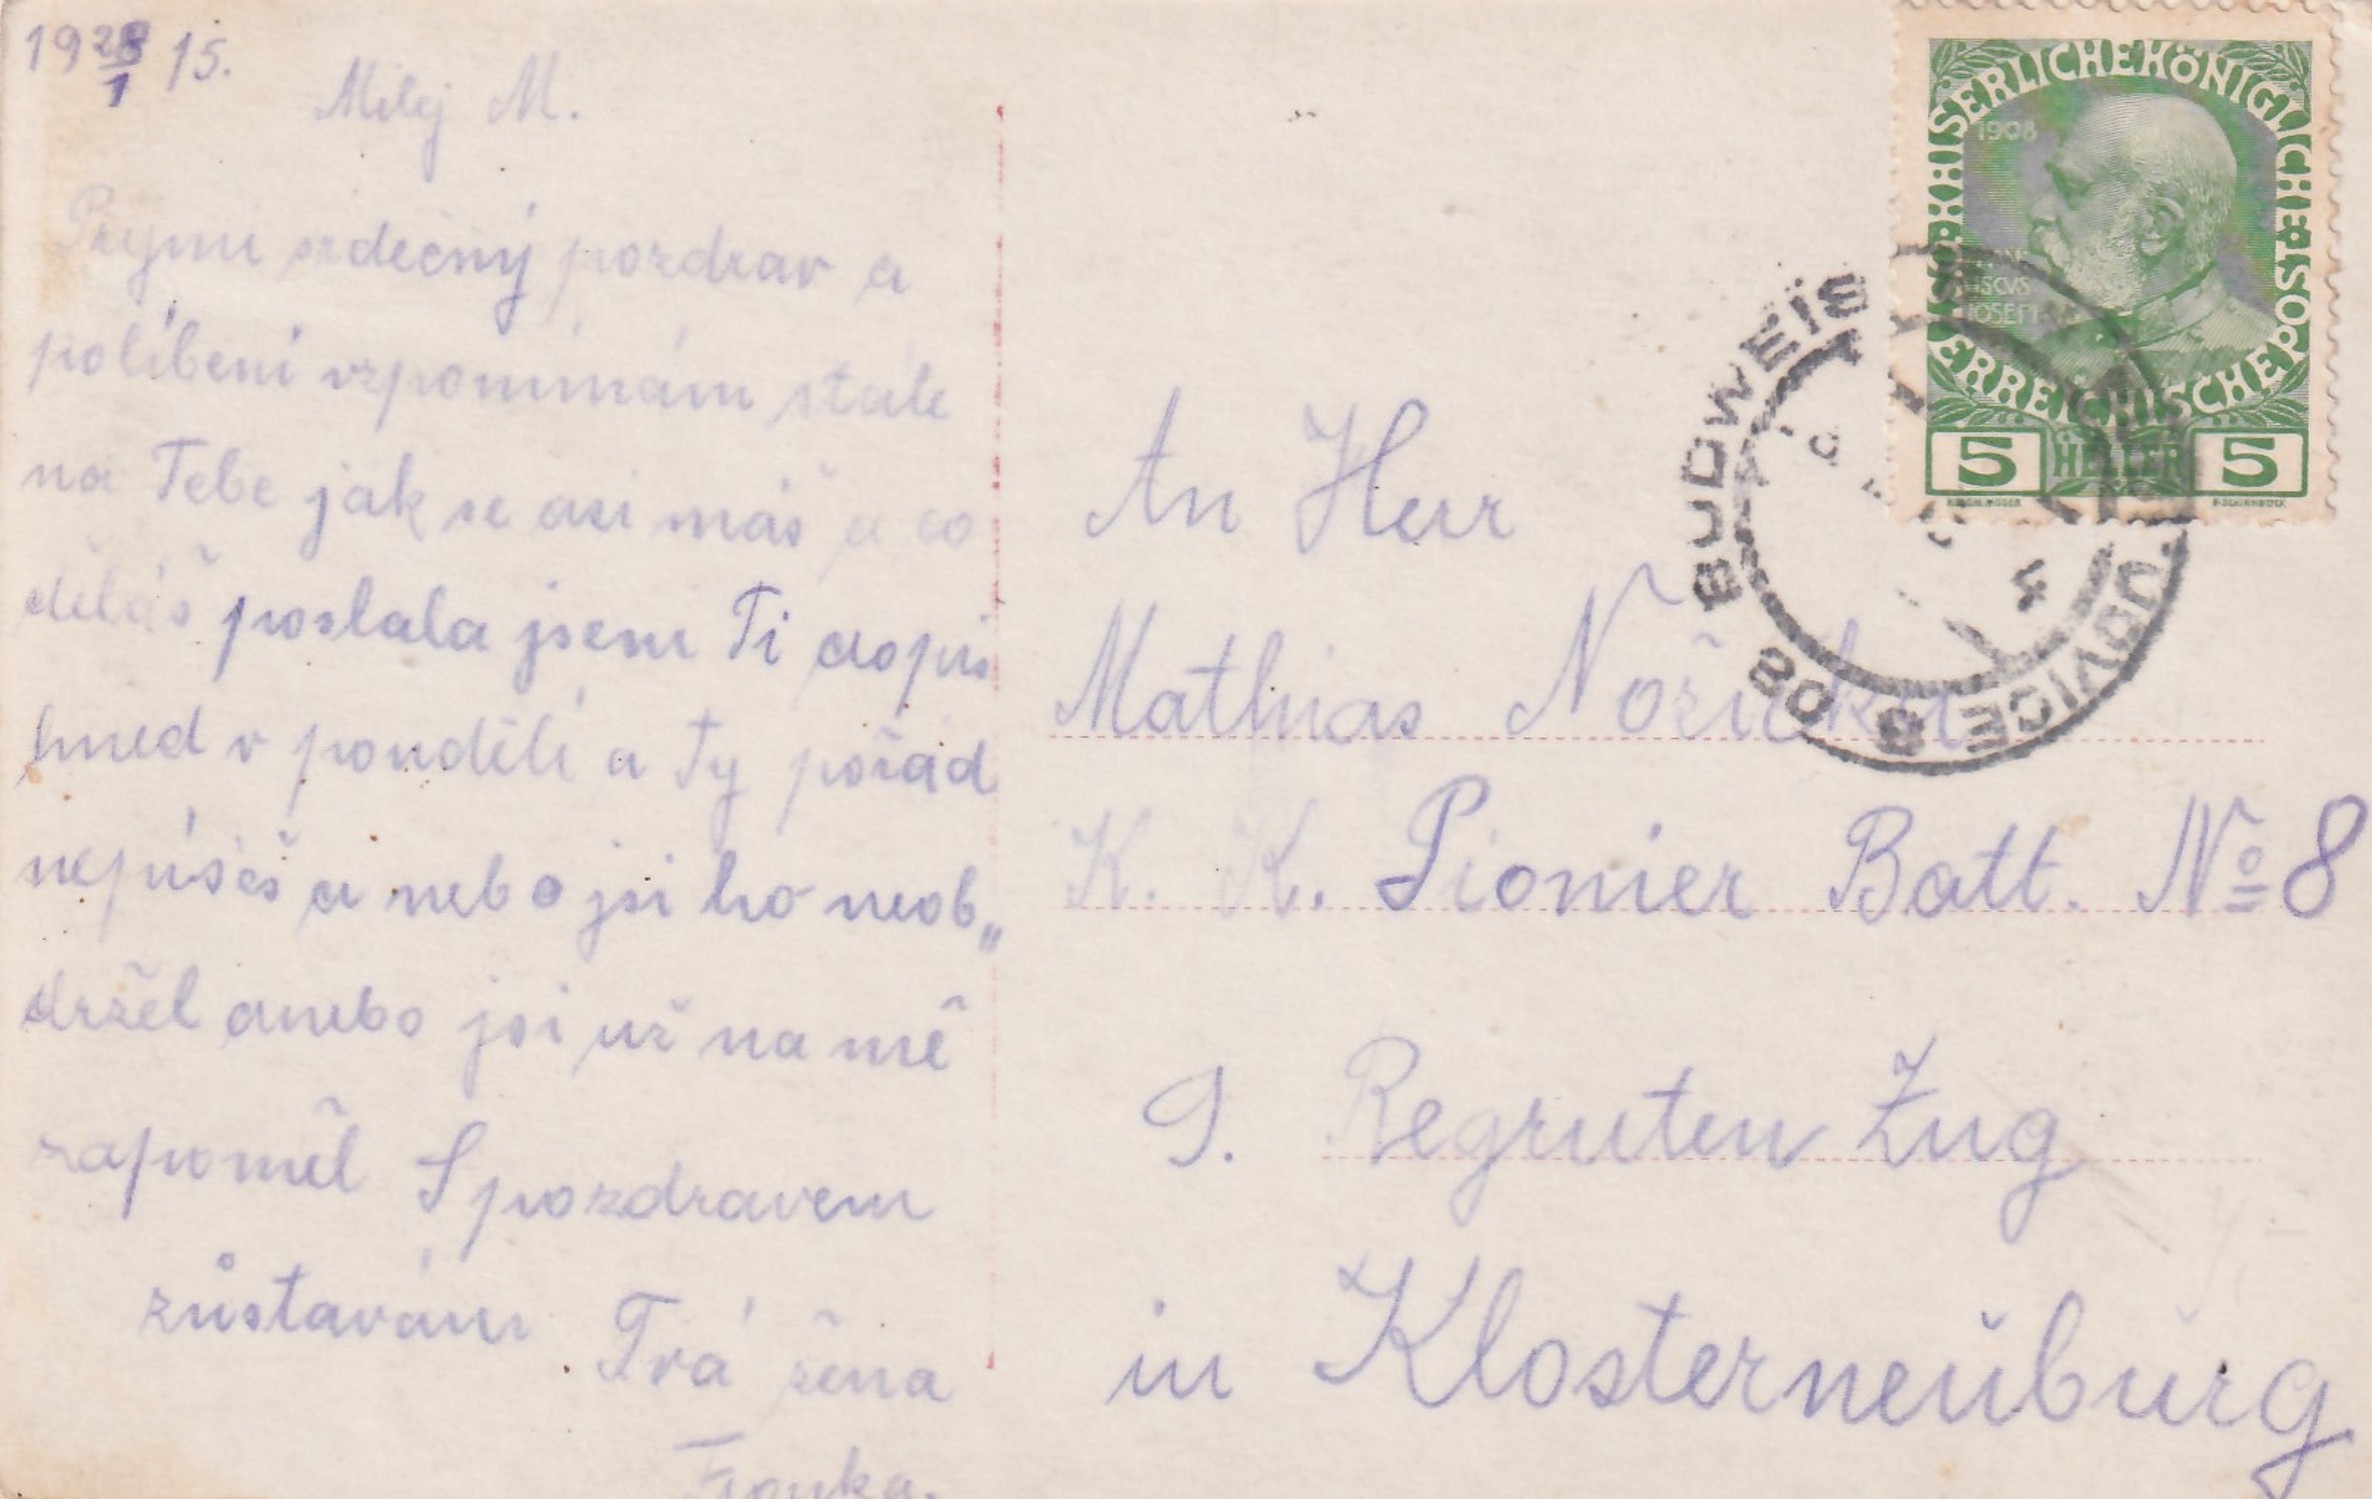 19 28/1 15.
Milej M.
Prijmi srdečný pozdrav a
políbení vzpomínám stále
na Tebe jak se asi máš a co
děláš poslala jsem Ti dopis
hned v pondělí a Ty pořád
nepíšeš a nebo jsi ho neob„
držel anebo jsi už na mě
zapoměl S pozdravem
zůstávám Tvá žena
An Herr
Mathias Nořička
K. K. Pionier Batt. No 8
9. Regruten Zug
in Klosterneuburg
KAISERLICHEKÖNIGLICHE
ÖSTERREICHISCHEPOST
1908
5 HELLER 5
BUDWEIS
BUDĚJOVICE 8